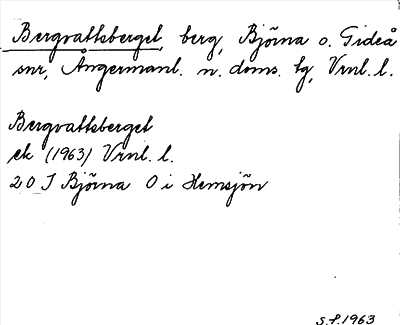 Bergvattsberget, berg, Björna o. Gideå
snr, Ångermanl. n. doms. tg, Vrnl. l.
Bergvattsberget
ek (1963) Vrnl. l.
20 J Björna O i Hemsjön
S.f. 1963